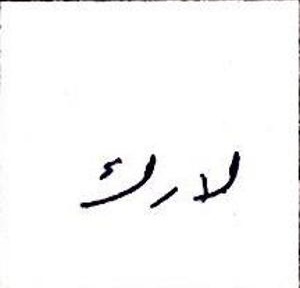 لارك